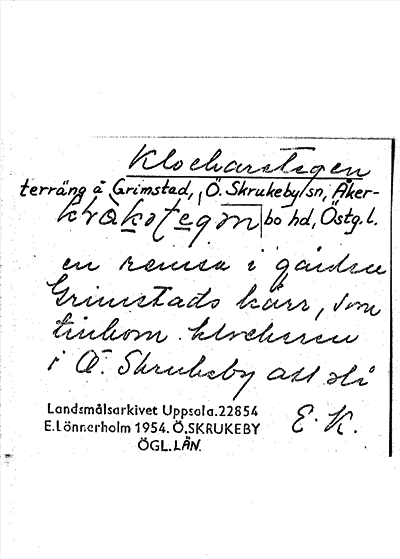 Klockarstegen
terräng å Grimstad, Ö. Skrukeby sn, Åker-
bo hd, Östg. l.
en remsa i gården
Grimstads kärr, som
tillkom klockaren
i Ö. Skrukeby att slå
E. K.
Landsmålsarkivet Uppsala. 22854
E. Lönnerholm 1954. Ö. SKRUKEBY
ÖGL. LÄN.